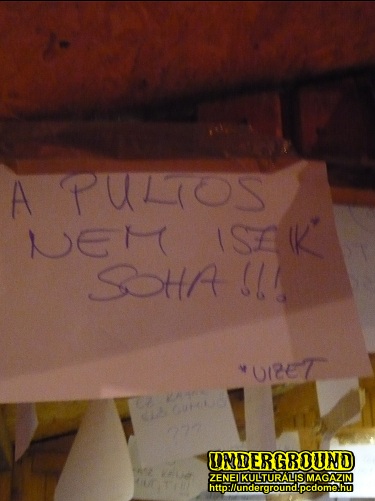 A PULTOS
NEM ISZIK*
SOHA!!!
*VIZET
???
UNDERGROUND
ZENEI KULTURÁLIS MAGAZIN
http://underground.pcdome.hu